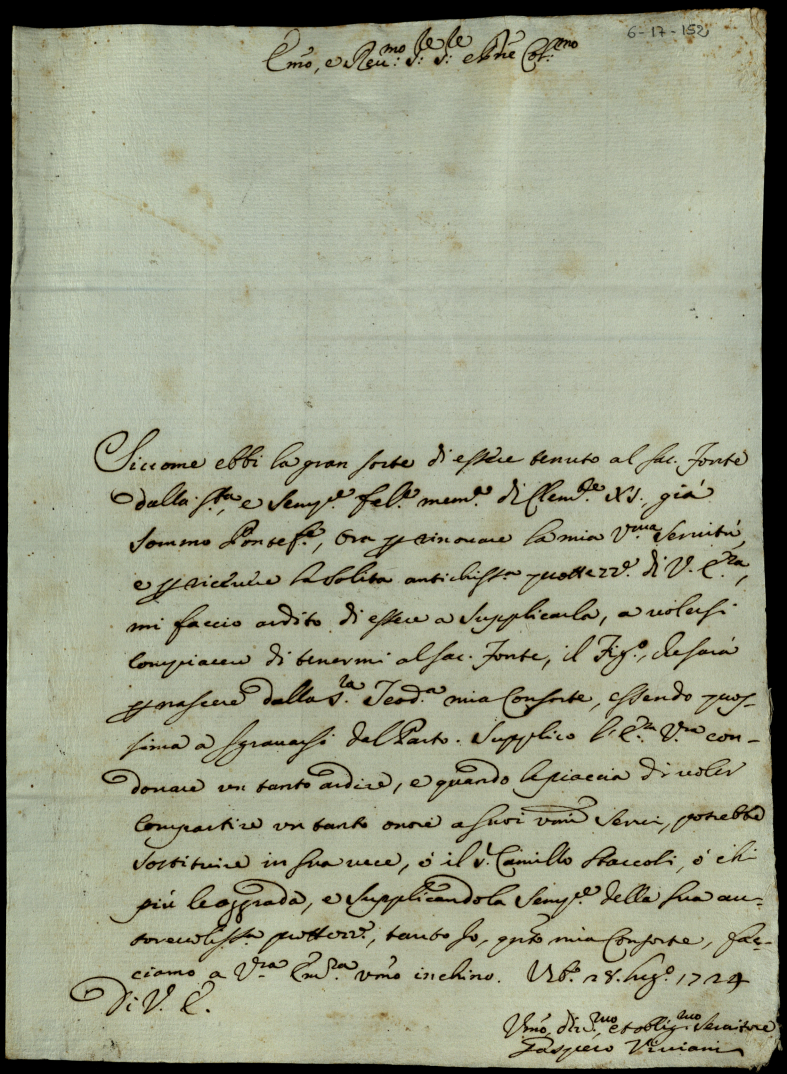 6-17-152
Emo, e Reu.mo S.re S.re e Pne Col.mo
Siccome ebbi la gran sorte di essere tenuto al sac. Fonte
dalla Sta, e Semp.e fel.e mem.a di Clem.te XI. già
Sommo Pontef.e, Ora p rinouare la mia V.ma Seruitù,
e p riceuere la solita antichiss.a prottezz.e di V. E.za,
mi faccio ardito di essere a supplicarla, a uolersi
compiacere di tenermi al sac. Fonte, il Fig.o, che sarà
p nascere dalla S.ra Teod.a mia Consorte, essendo pros-
sima a sgrauarsi del Parto. Supplico l'E.za V.ra con-
donare un tanto ardire, e quando le piaccia di uoler
compartire un tanto onore a suoi umi Serui, potrebbe
sostituire in sua uece, ò il S.r Camillo Staccoli, ò chi
più le aggrada, e supplicandola Semp.e della sua au-
toreuoliss.a prottezz.e, tanto Io, qnto mia Consorte, fac-
ciamo a V.ra Em.za umo inchino. Urb.o 28. lug.o 1724
Di V. E.
Umo, diu.mo, et oblig.mo Seruitore
Gaspero Viuiani